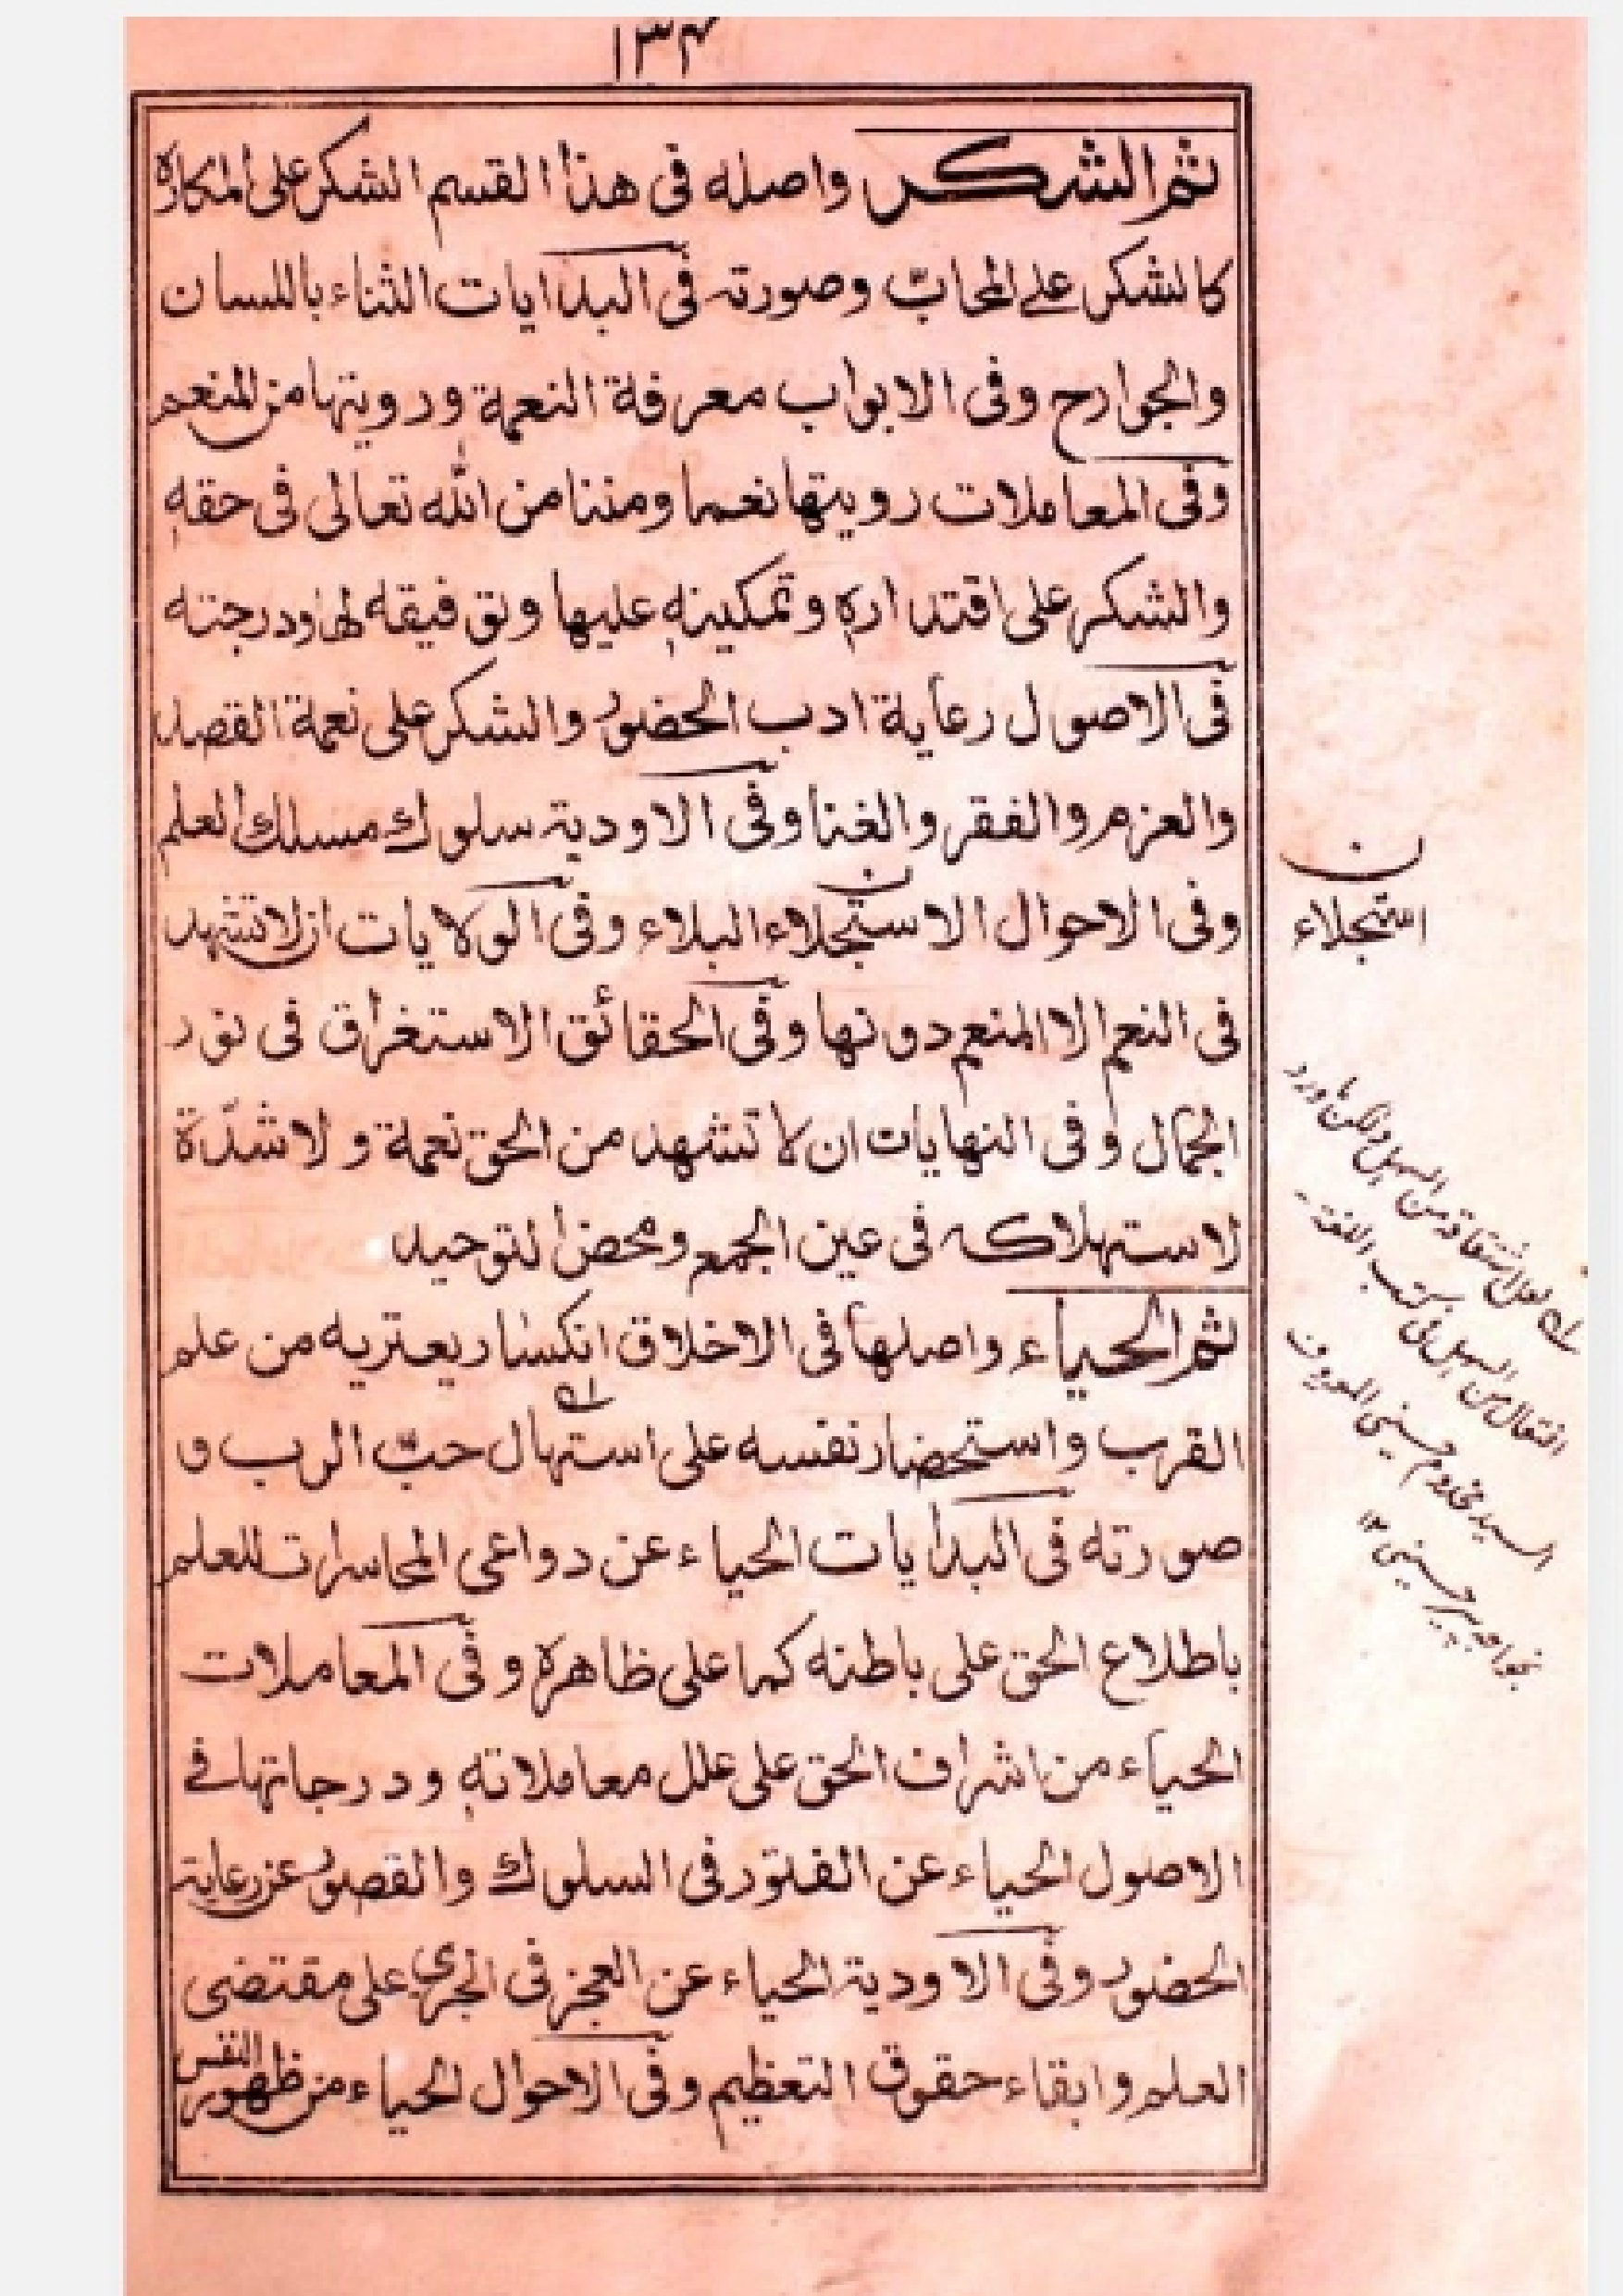 ۱۳۴
ثم الشكر واصله فى هذا القسم الشكر على المكاره
كالشكر على المحابّ وصورته فى البدايات الثناء باللسان
والجوارح وفى الابواب معرفة النعمة ورويتها من المنعم
وفى المعاملات رويتها نعما ومننا من الله تعالى فى حقه
والشكر على اقتداره وتمكينه عليها وتوفيقه لها ودرجته
فى الاصول رعاية ادب الحضور والشكر على نعمة القصد
والعزم والفقر والغنا وفى الاودية سلوك مسلك العلم
وفى الاحوال الاستجلاء البلاء وفى الولايات ان لا تشهد
فى النعم الا المنعم دونها وفى الحقائق الاستغراق فى نور
الجمال وفى النهايات ان لا تشهد من الحق نعمة ولا شدّة
لاستهلاكه فى عين الجمع ومحض التوحيد
ثم الحياء واصلها فى الاخلاق انكسار يعتريه من علم
القرب واستحضار نفسه على استهال حبّ الرب و
صورته فى البدايات الحياء عن دواعى المحاسرات للعلم
باطلاع الحق على باطنه كما على ظاهره وفى المعاملات
الحياء من اشراف الحق على علل معاملاته ودرجاتها فى
الاصول الحياء عن الفتور فى السلوك والقصور عن رعاية
الحضور وفى الاودية الحياء عن العجز فى الجرى على مقتضى
العلم وابقاء حقوق التعظيم وفى الاحوال الحياء من ظهور النفس
ن
استجلاء
لعل اشتقاقه من السهل ولكن ما ورد
افتعال من السهل فى كتب اللغة
السيد مخدوم حسينى المعروف
بخواجه پير حسينى ۱۲